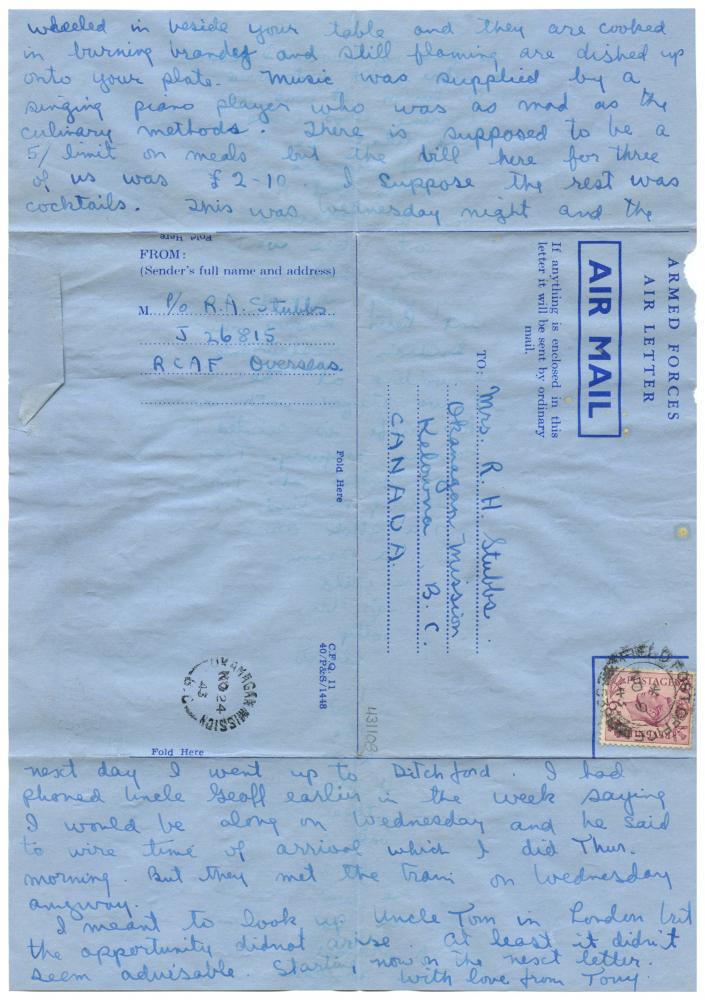 wheeled in beside your table and they are cooked
in burning brandy and still flaming are dished up
onto your plate. Music was supplied by a
singing piano player who was as mad as the
culinary methods. There is supposed to be a
5/ limit on meals but the bill here for three
of us was £2-10. I suppose the rest was
cocktails. This was Wednesday night and the
Fold Here
FROM:
(Sender's full name and address)
M. P/O R.A. Stubbs
J 26815
RCAF Overseas
Fold Here
C.F.Q. 11
40/P&S/1448
431108
OKANAGAN MISSION
NO 24
43
B.C.
Fold Here
ARMED FORCES
AIR LETTER
AIR MAIL
If anything is enclosed in this
letter it will be sent by ordinary
mail.
TO:
Mrs. R. H. Stubbs.
Okanagan Mission
Kelowna B.C.
CANADA.
POSTAGE
next day I went up to Ditchford. I had
phoned Uncle Geoff earlier in the week saying
I would be along on Wednesday and he said
to wire time of arrival which I did Thur.
morning. But they met the train on Wednesday
anyway.
I meant to look up Uncle Tom in London but
the opportunity didnot arise. At least it didn't
seem advisable. Starting now on the next letter.
With love from Tony.